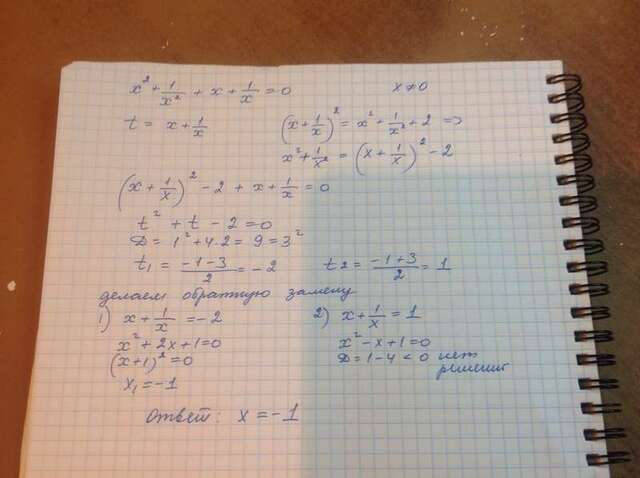 x² + 1/x² + x + 1/x = 0    x ≠ 0
t = x + 1/x    (x + 1/x)² = x² + 1/x² + 2 =>
x² + 1/x² = (x + 1/x)² - 2
(x + 1/x)² - 2 + x + 1/x = 0
t² + t - 2 = 0
D = 1² + 4·2 = 9 = 3²
t₁ = (-1-3)/2 = -2    t₂ = (-1+3)/2 = 1
делаем обратную замену
1) x + 1/x = -2    2) x + 1/x = 1
x² + 2x + 1 = 0    x² - x + 1 = 0
(x+1)² = 0    D = 1 - 4 < 0 нет
решений
x₁ = -1
ответ: x = -1